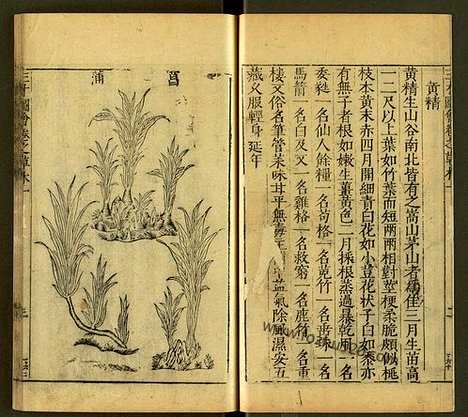 黃精
黃精生山谷南北皆有之嵩山茅山者為佳三月生苗高
一二尺以上葉如竹葉而短兩兩相對莖梗柔脆頗似桃
枝本黃末赤四月開細青白花如小豆花狀子白如黍亦
有無子者根如嫩生薑黃色二月採根蒸過暴乾用
一名仙人餘糧一名苟格一名菟竹一
馬箭一名白及又一名雞格一名救窮一名鹿竹一
棲又俗名筆管菜味甘平無毒
氣除風濕安五
藏久服輕身延年
菖蒲
三才圖會